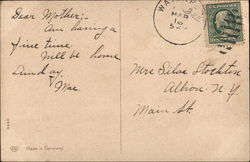 Dear Mother:-
Am having a
fine time
Will be home
Sunday.
Mae.
Mrs Silas Stockton
Albion N.Y
Main St.
Made in Germany